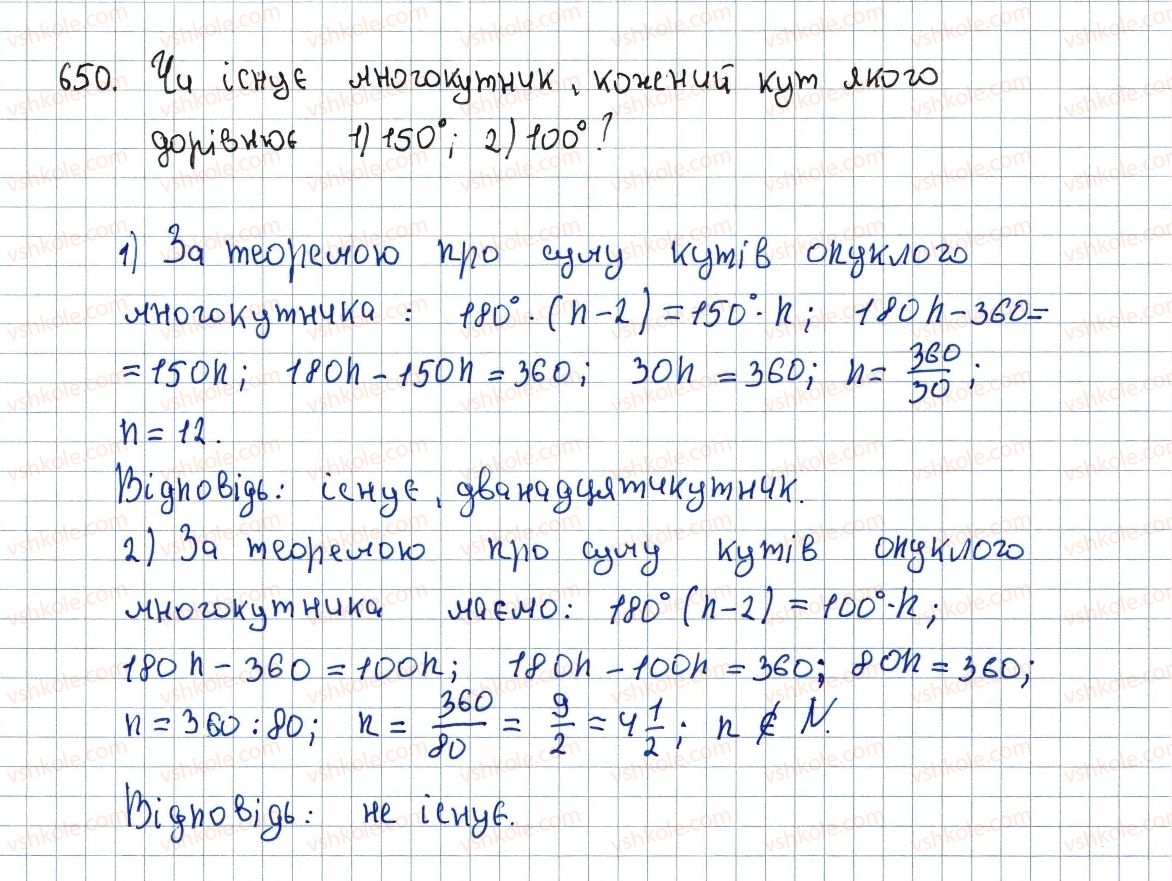 650. Чи існує многокутник, кожений кут якого
дорівнює 1) 150°; 2) 100°?
1) За теоремою про суму кутів опуклого
многокутника: 180° · (n-2) = 150° · n; 180n - 360 =
= 150n; 180n - 150n = 360; 30n = 360; n = 360/30;
n = 12.
Відповідь: існує, дванадцятикутник.
2) За теоремою про суму кутів опуклого
многокутника маємо: 180° (n-2) = 100° · n;
180n - 360 = 100n; 180n - 100n = 360; 80n = 360;
n = 360 : 80; n = 360/80 = 9/2 = 4 1/2; n ∉ N.
Відповідь: не існує.